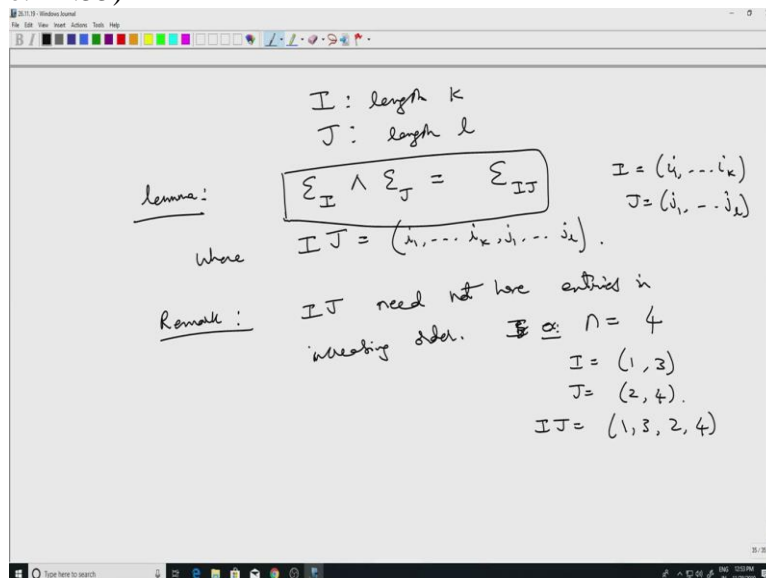 26.11.19 - Windows Journal
File Edit View Insert Actions Tools Help
I : length k
J : length l
lemma: Ɛ_I ∧ Ɛ_J = Ɛ_IJ
I = (i₁, ... iₖ)
J = (j₁, ... jₗ)
where IJ = (i₁, ... iₖ, j₁, ... jₗ).
Remark : IJ need not have entries in
increasing order. n = 4
I = (1, 3)
J = (2, 4).
IJ = (1, 3, 2, 4)
35/35
Type here to search
ENG 12:53 PM